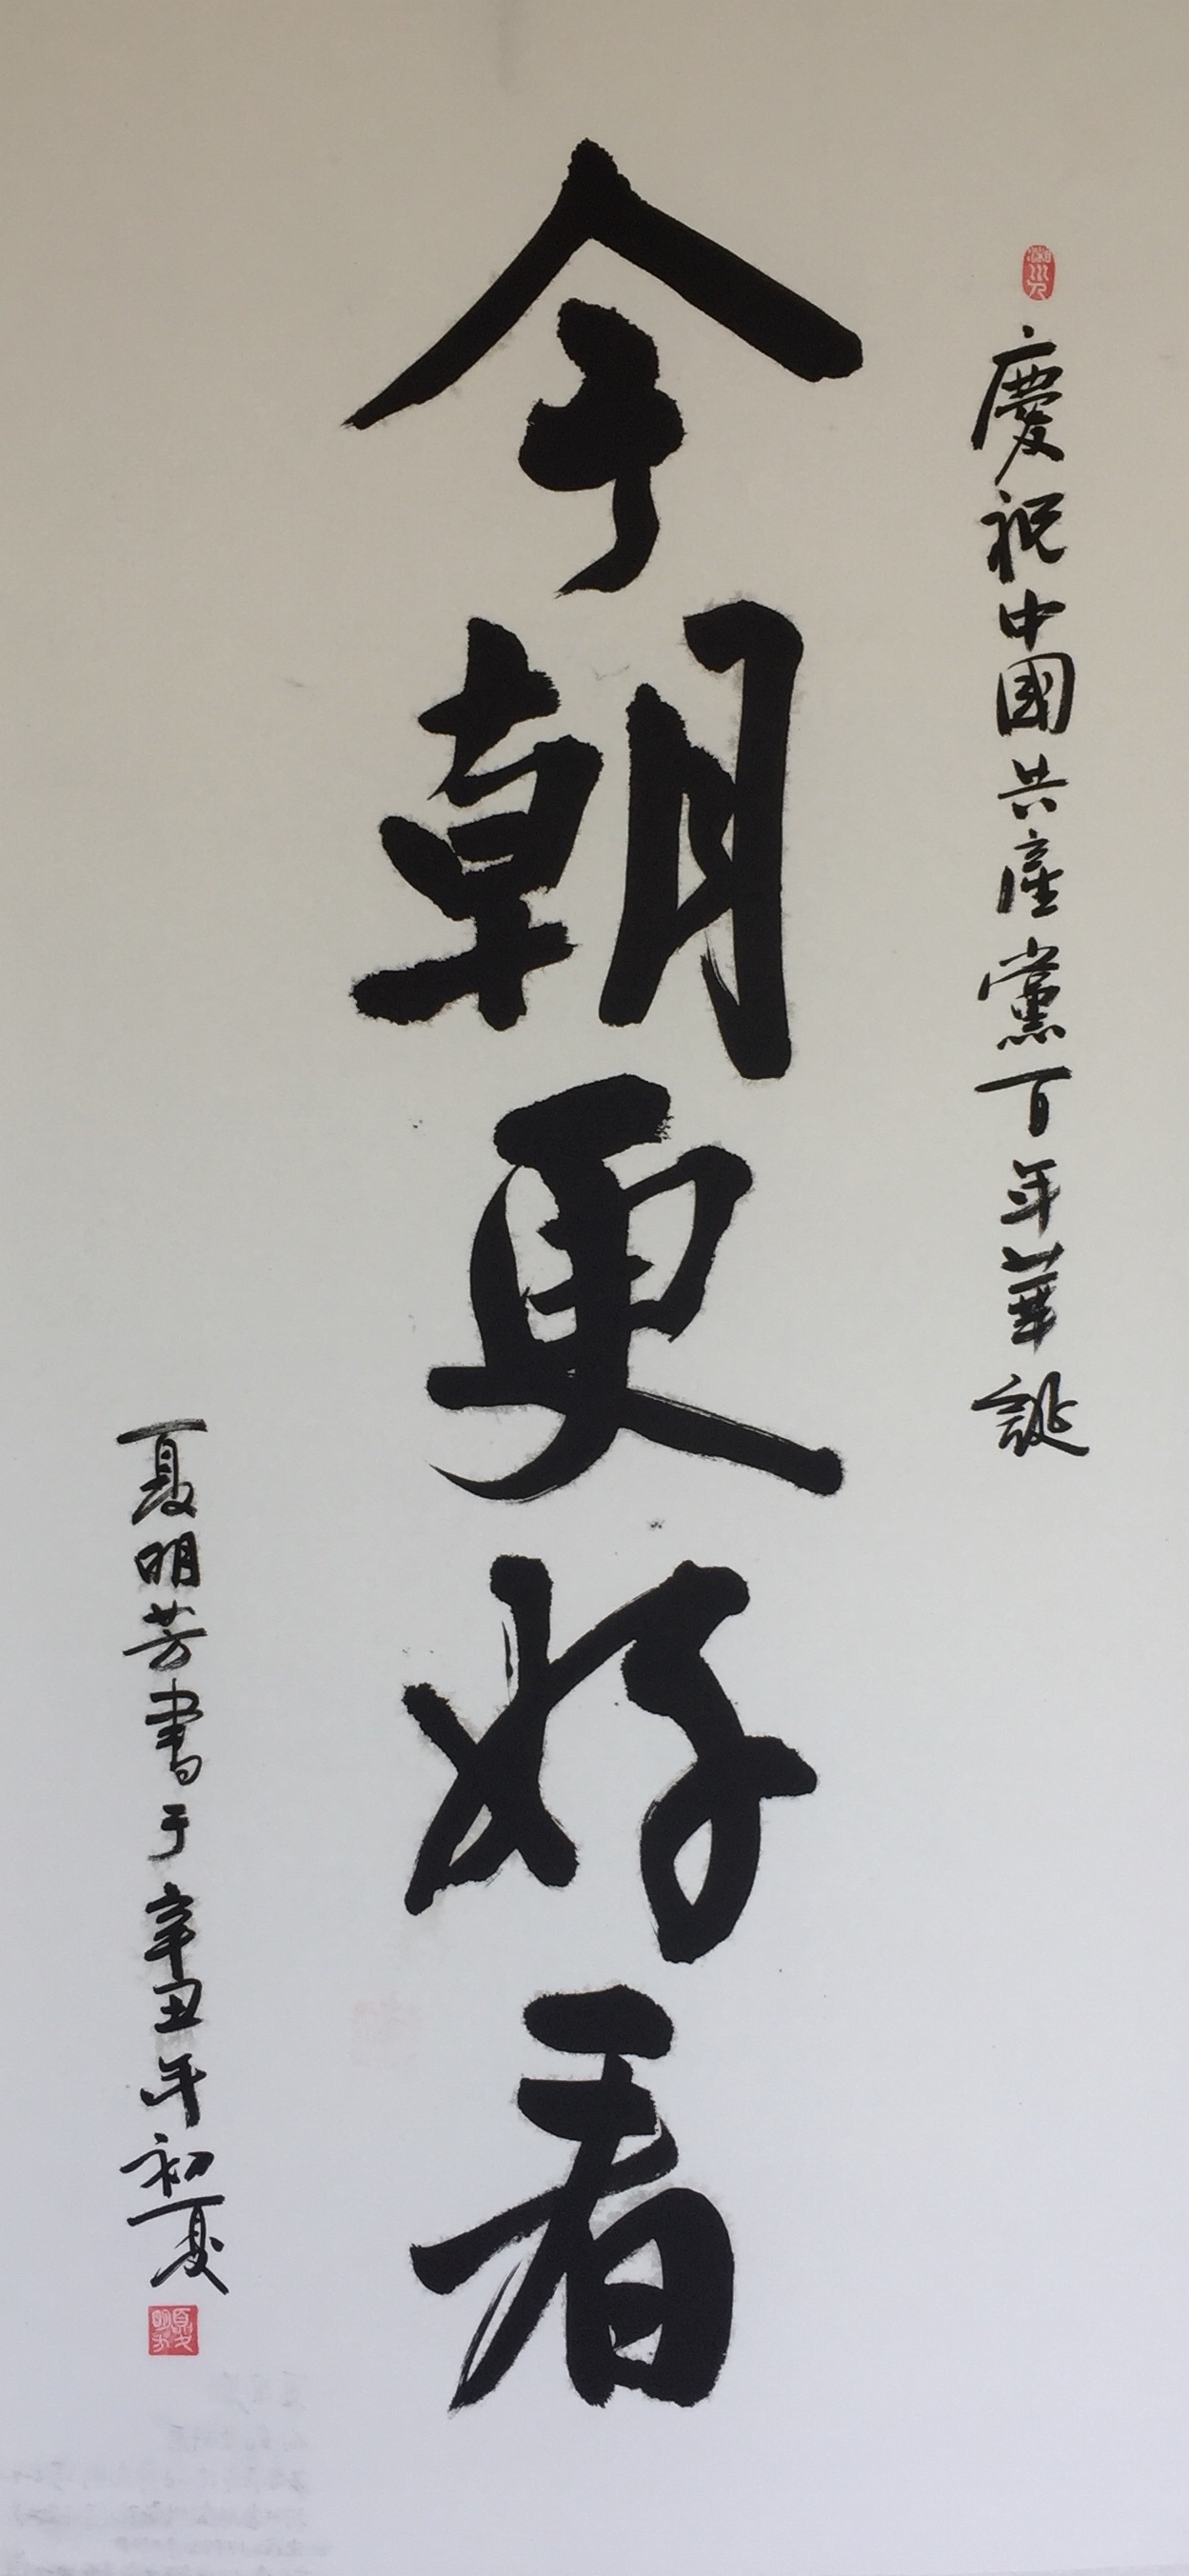 慶祝中國共產黨百年華誕
今朝更好看
夏明芳書于辛丑年初夏